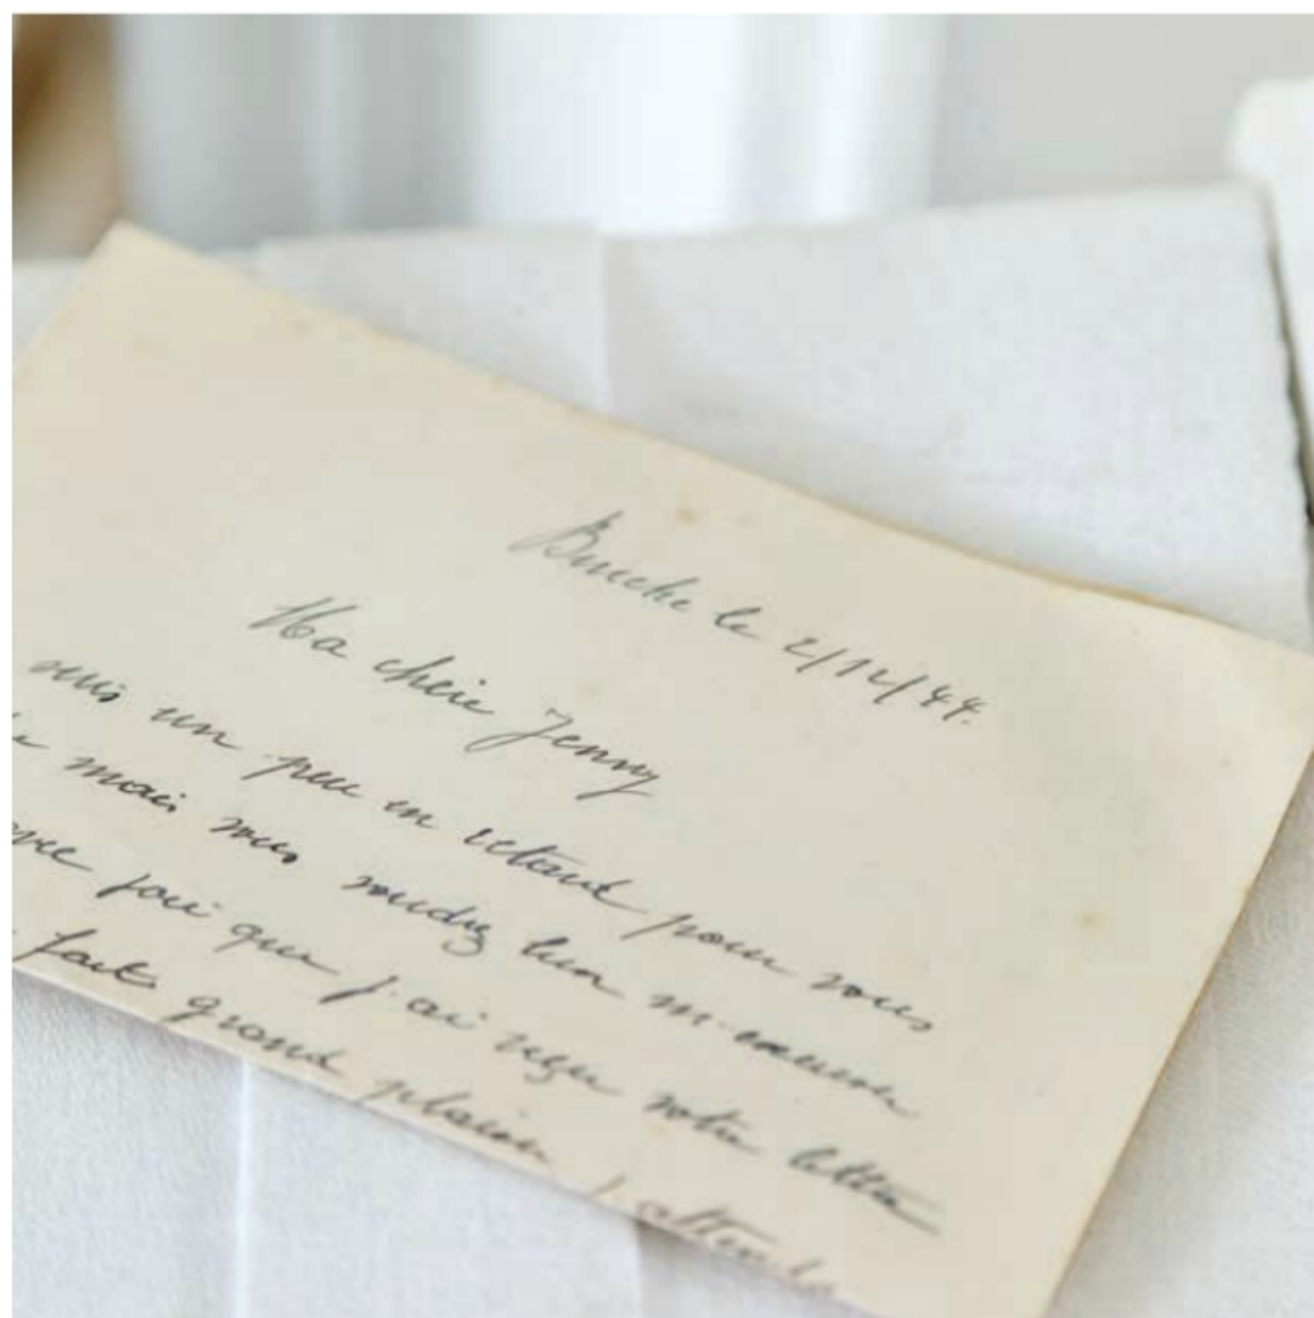 le 2/12/44.
Ma chère Jenny
suis un peu en retard pour vous
mais vous voudrez bien m'excuser
avec joie que j'ai reçu votre lettre
fait grand plaisir j'attends